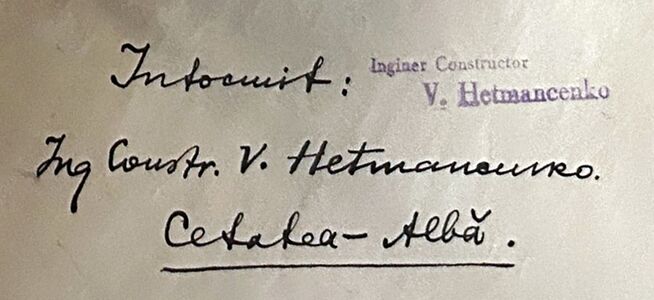 Intocmit:
Inginer Constructor
V. Hetmancenko
Ing Constr. V. Hetmancenko.
Cetatea-Albă.